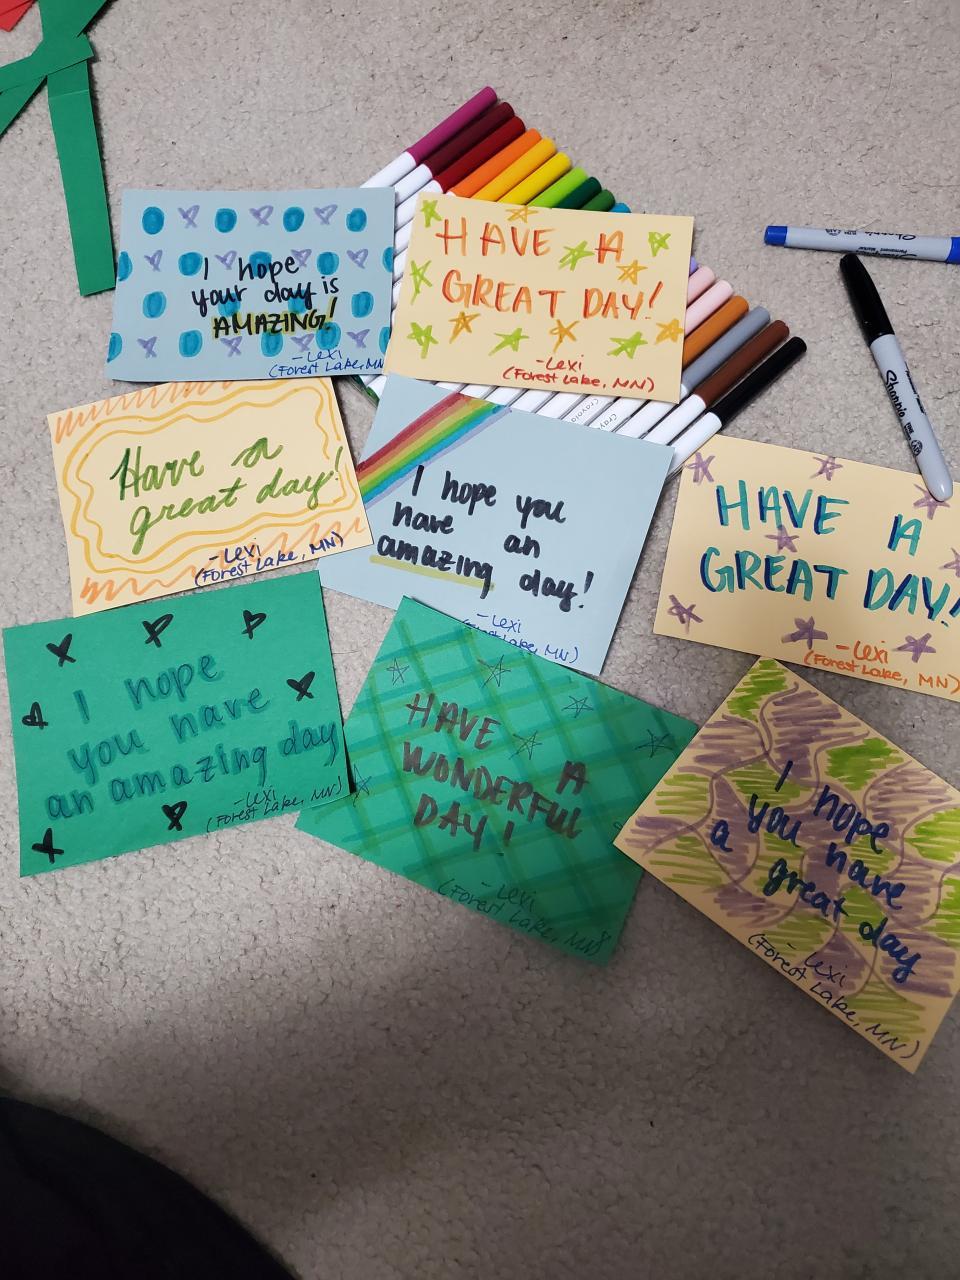 I hope
your day is
AMAZING!
-Lexi
(Forest Lake, MN
HAVE A
GREAT DAY!
-Lexi
(Forest Lake, MN)
Sharpie
Permanent Marker
Crayola
Sharpie
Have a
great day!
-Lexi
(Forest Lake, MN)
I hope you
have an
amazing day!
-Lexi
Forest Lake, MN)
HAVE A
GREAT DAY!
-Lexi
(Forest Lake, MN)
I hope
you have
an amazing day
-Lexi
(Forest Lake, MN)
HAVE A
WONDERFUL
DAY!
-Lexi
(Forest Lake, MN)
I hope
you have
a great day
-Lexi
(Forest Lake, MN)